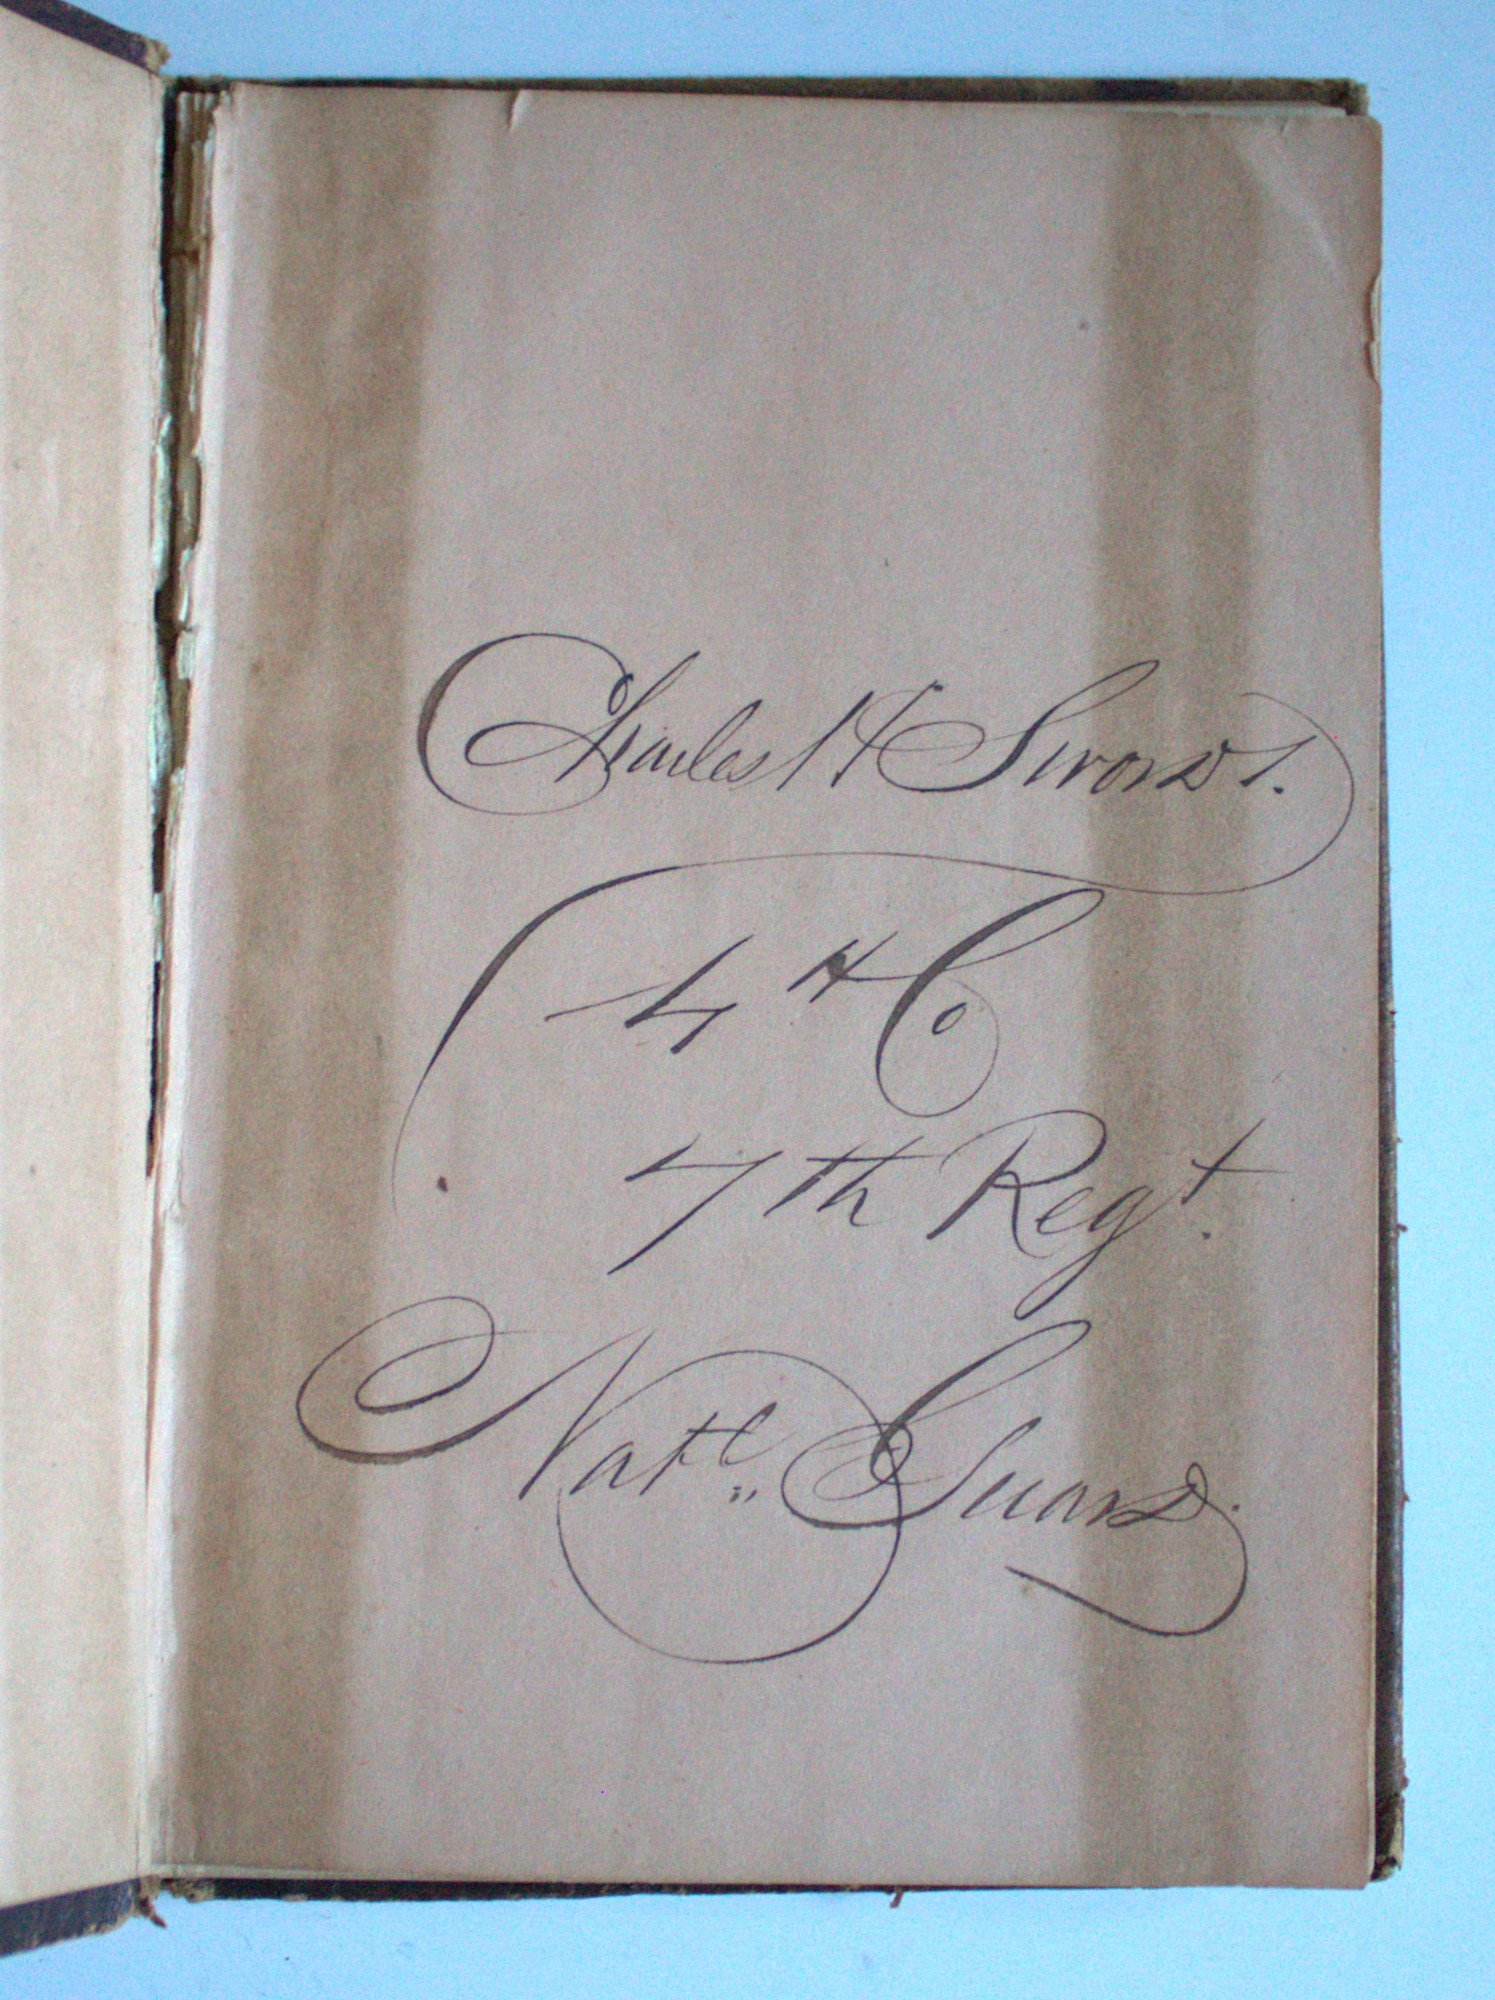 Charles H Swords.
4th Co
7th Regt.
Natl. Guard.